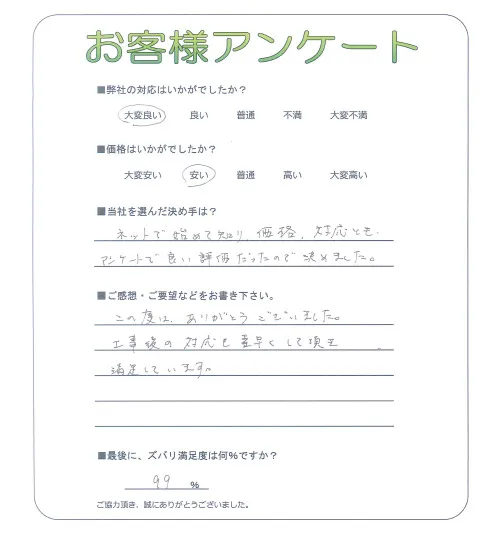 お客様アンケート
■弊社の対応はいかがでしたか？
大変良い 良い 普通 不満 大変不満
■価格はいかがでしたか？
大変安い 安い 普通 高い 大変高い
■当社を選んだ決め手は？
ネットで始めて知り、価格、対応とも、
アンケートで良い評価だったので決めました。
■ご感想・ご要望などをお書き下さい。
この度は、ありがとうございました。
工事後の対応も素早くして頂き、
満足しています。
■最後に、ズバリ満足度は何%ですか？
99 %
ご協力頂き、誠にありがとうございました。